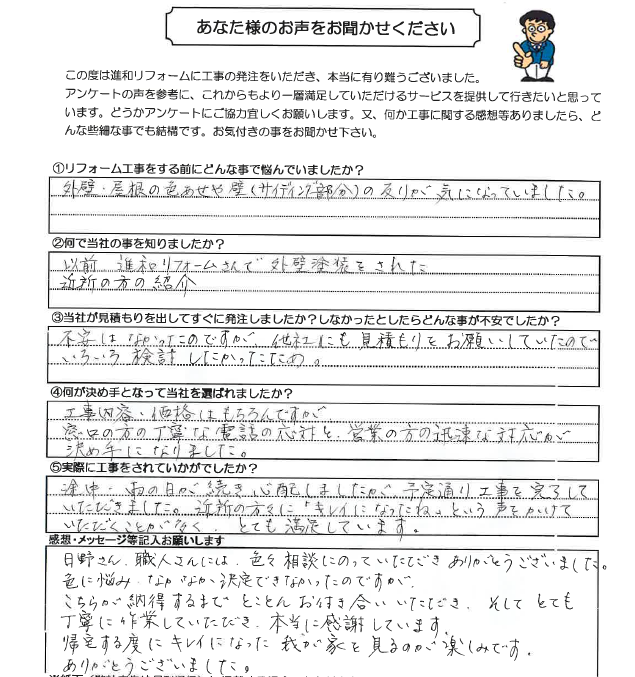 あなた様のお声をお聞かせください
この度は進和リフォームに工事の発注をいただき、本当に有り難うございました。
アンケートの声を参考に、これからもより一層満足していただけるサービスを提供して行きたいと思って
います。どうかアンケートにご協力宜しくお願いします。又、何か工事に関する感想等ありましたら、ど
んな些細な事でも結構です。お気付きの事をお聞かせ下さい。
①リフォーム工事をする前にどんな事で悩んでいましたか?
外壁・屋根の色あせや壁(サイディング部分)の反りが気になっていました。
②何で当社の事を知りましたか?
以前 進和リフォームさんで外壁塗装をされた
近所の方の紹介
③当社が見積もりを出してすぐに発注しましたか?しなかったとしたらどんな事が不安でしたか?
不安はなかったのですが、他社にも見積もりをお願いしていたので
いろいろ検討したかったため。
④何が決め手となって当社を選ばれましたか?
工事内容・価格はもちろんですが
窓口の方の丁寧な電話の応対と、営業の方の迅速な対応が
決め手になりました。
⑤実際に工事をされていかがでしたか?
途中、雨の日が続き心配しましたが予定通り工事を完了して
いただきました。近所の方々に「キレイになったね」という声をかけて
いただくことが多く、とても満足しています。
感想・メッセージ等記入お願いします
日野さん、職人さんには、色々相談にのっていただきありがとうございました。
色に悩み、なかなか決定できなかったのですが、
こちらが納得するまでとことんお付き合いいただき、そしてとても
丁寧に作業していただき、本当に感謝しています。
帰宅する度にキレイになった我が家を見るのが楽しみです。
ありがとうございました。